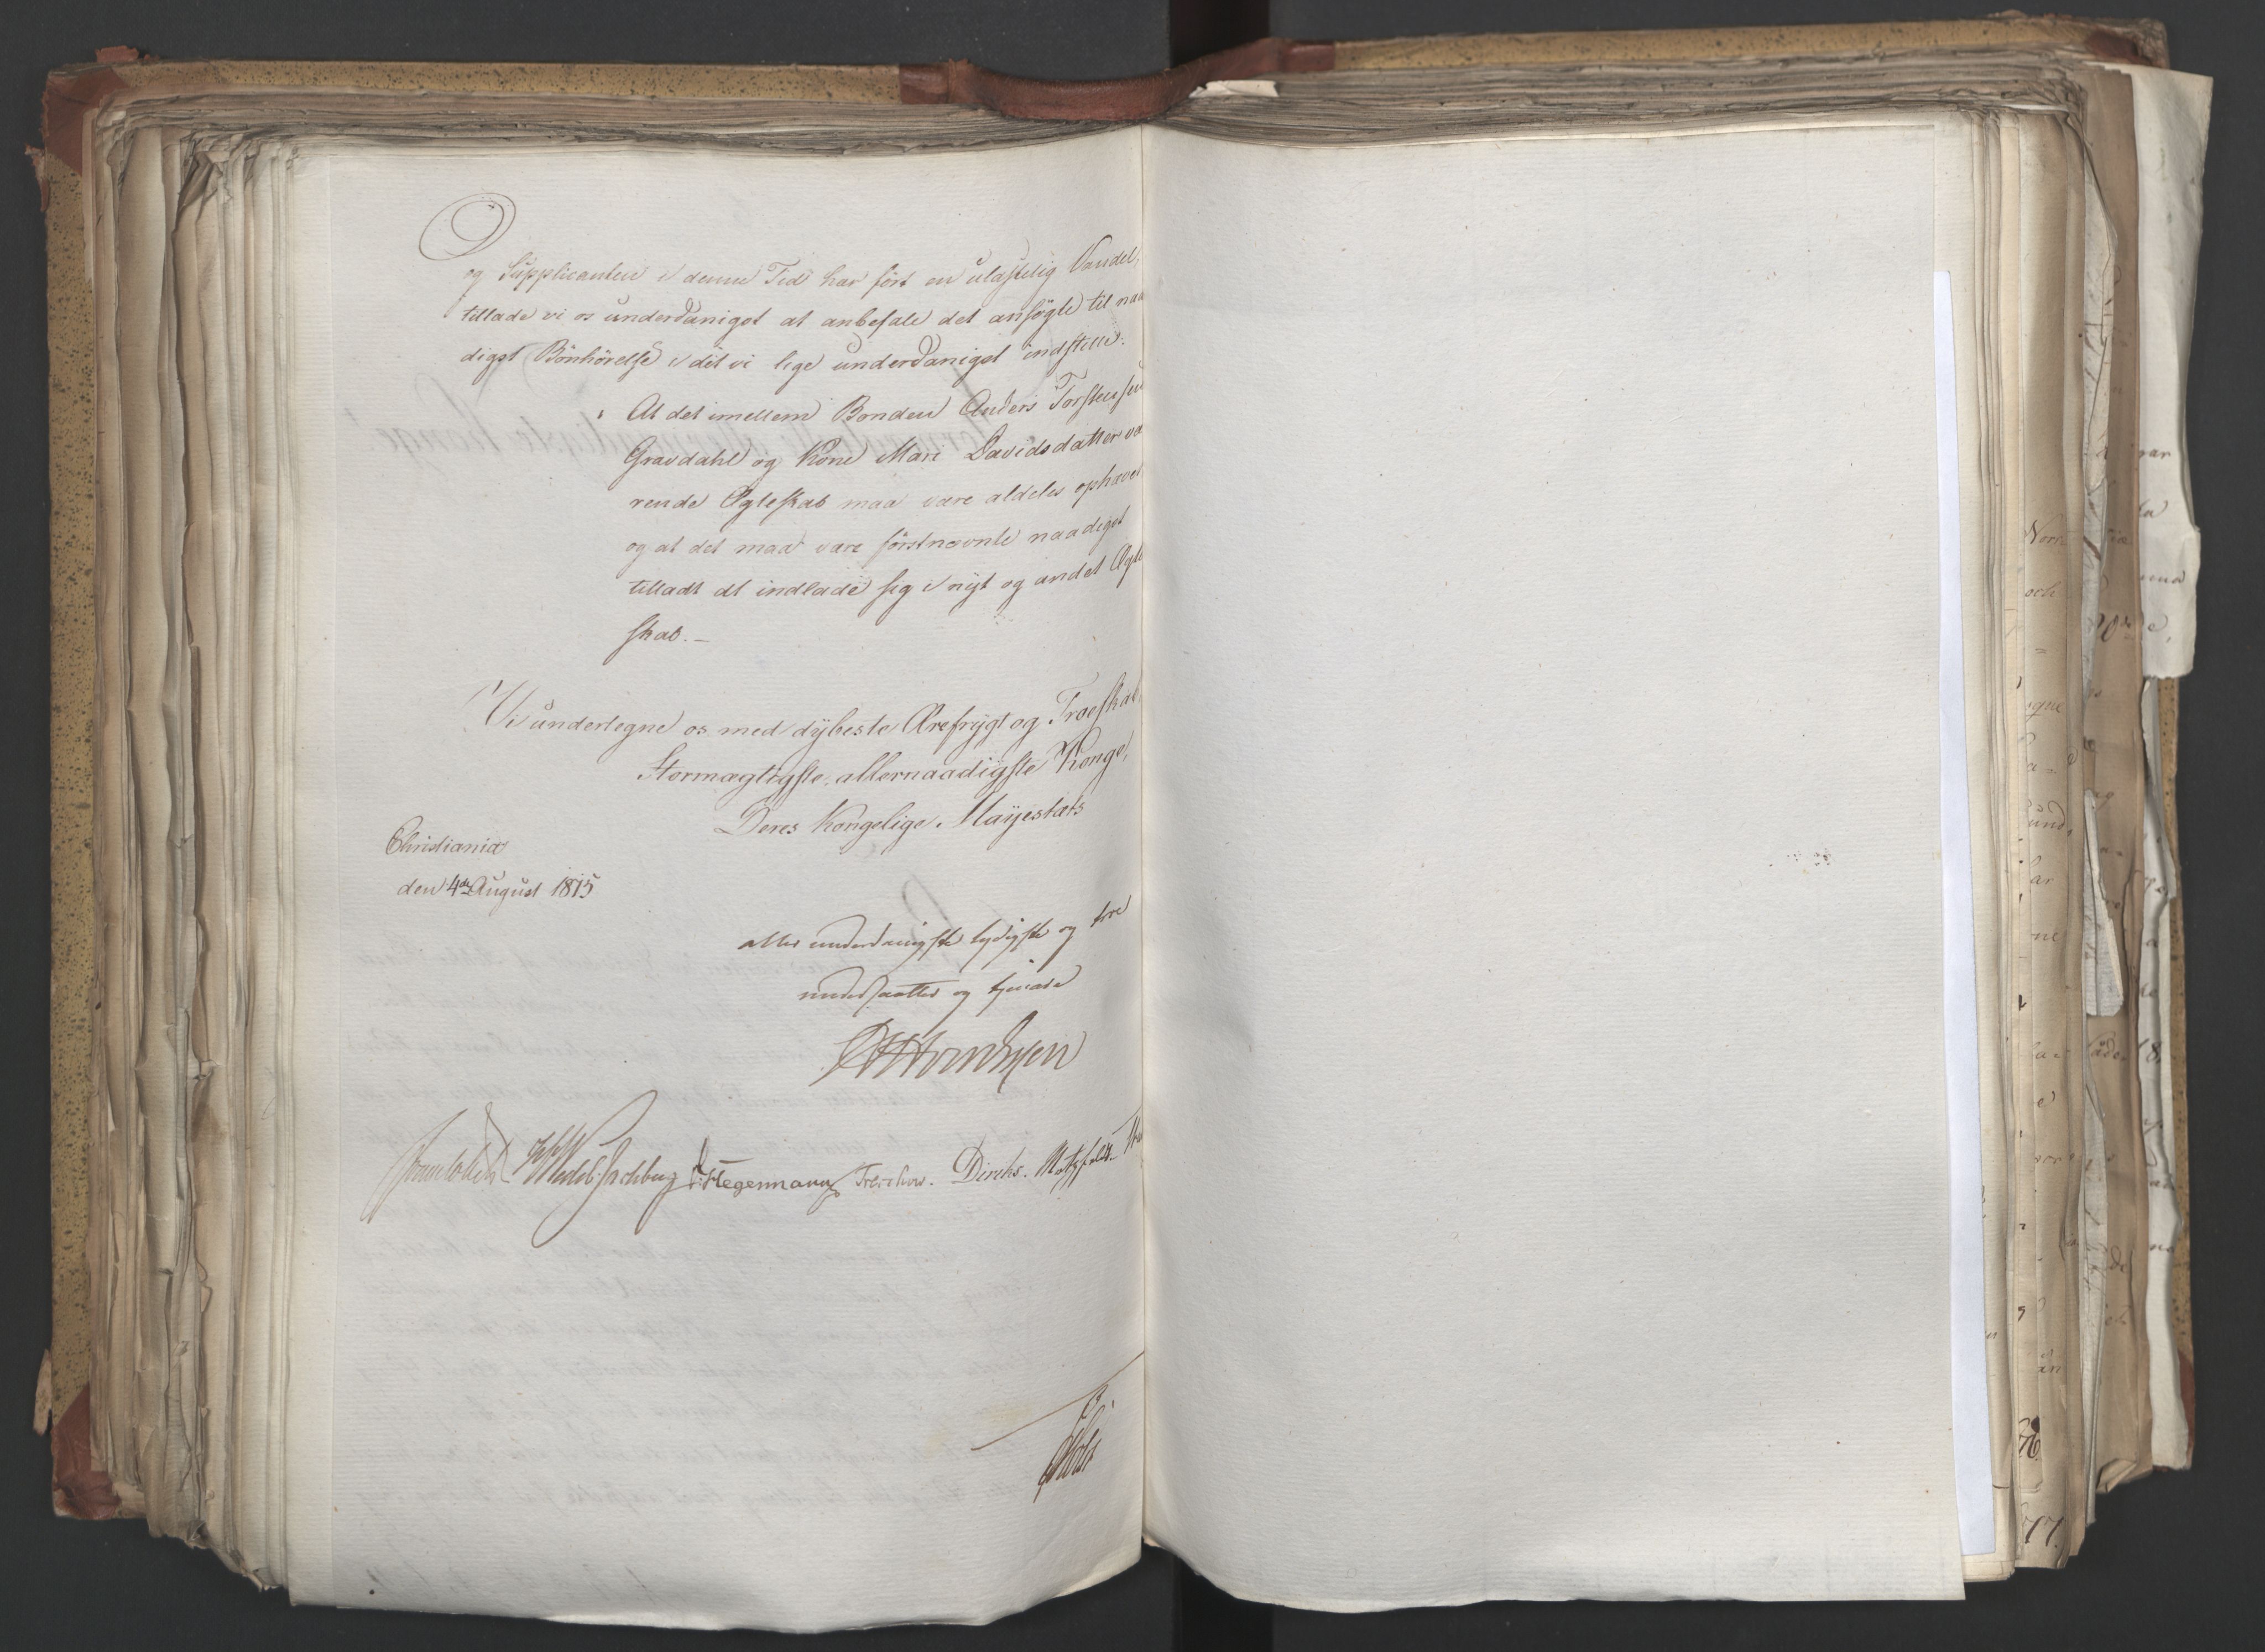 og Supplicanten i denne Tid har ført en ulastelig Vandel,
tillade vi os underdanigst at anbefale det ansøgte til naa
digst Bønhørelse i det vi lige underdanigst indstille:
At det imellem Bonden Anders Torstensen
Gravdahl og Kone Mari Davidsdatter væ
rende Ægteskab maa være aldeles ophævet
og at det maa være førstnævnte naadigst
tilladt at indlade sig i nyt og andet Ægte
skab. —
Vi undertegne os med dybeste Ærefrygt og Troeskab,
Stormægtigste, allernaadigste Konge,
Deres Kongelige Mayestæts
Christiania
den 4de August 1815
aller underdanigste lydigste og troe
undersaatter og tjenere
Sommerhielm Wedel-Jarlsberg Hegermann Treschow. Diriks. Motzfeldt.
Holst
Norr
och
77.